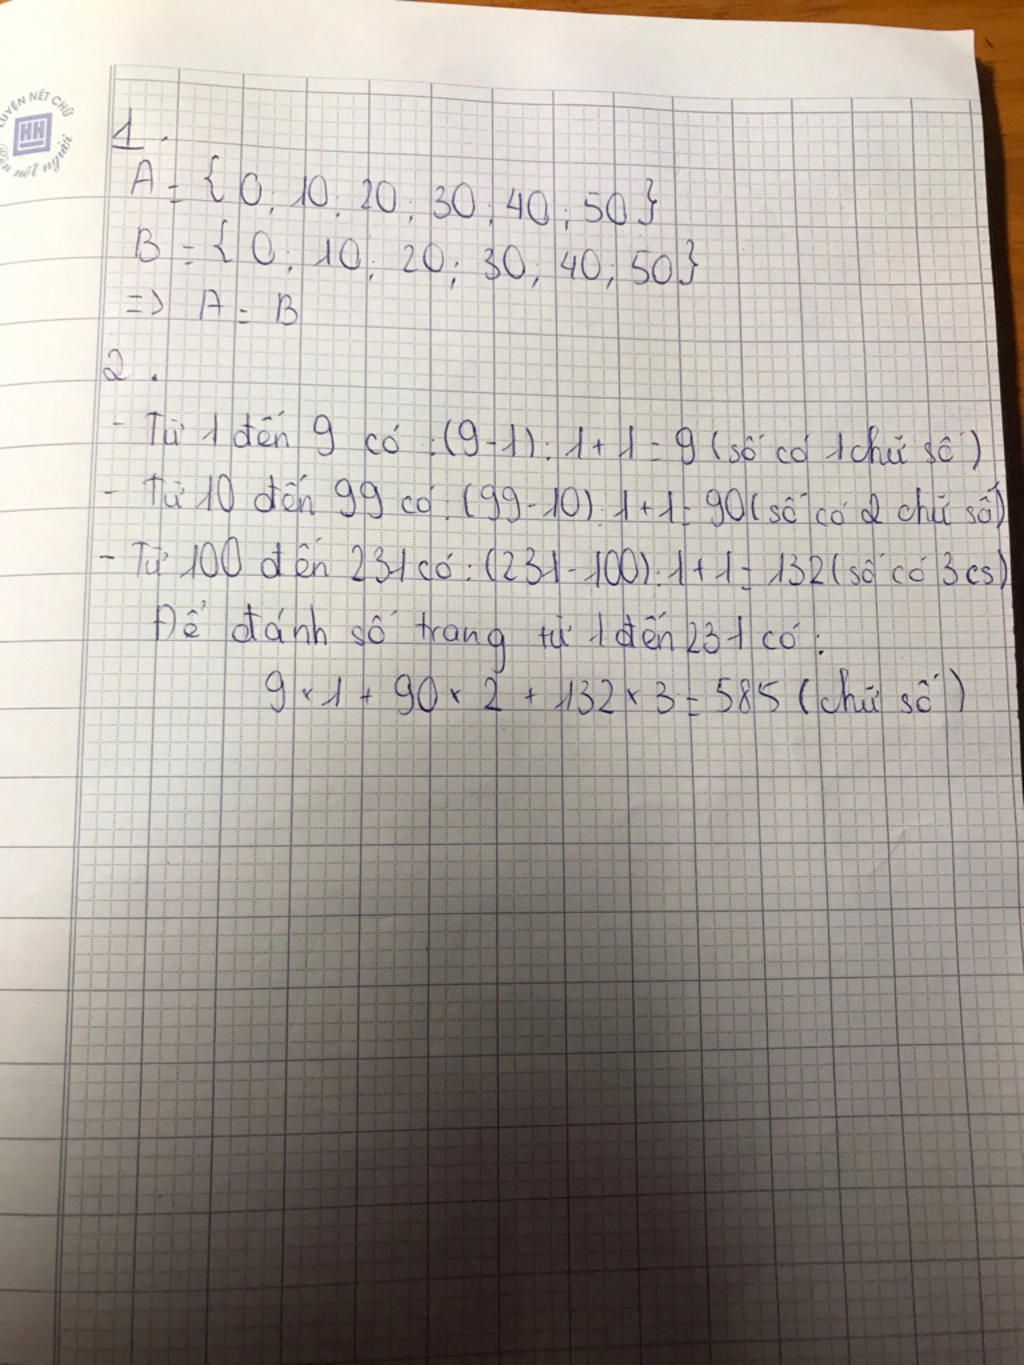 LUYỆN NÉT CHỮ
HH
nết người
1.
A = { 0; 10; 20; 30; 40; 50}
B = { 0; 10; 20; 30; 40; 50}
=> A = B
2.
- Từ 1 đến 9 có : (9-1) : 1 + 1 = 9 (số có 1 chữ số)
- Từ 10 đến 99 có : (99-10) : 1+1 = 90 (số có 2 chữ số)
- Từ 100 đến 231 có : (231-100) : 1+1 = 132 (số có 3 cs)
Để đánh số trang từ 1 đến 231 có :
9 × 1 + 90 × 2 + 132 × 3 = 585 (chữ số)